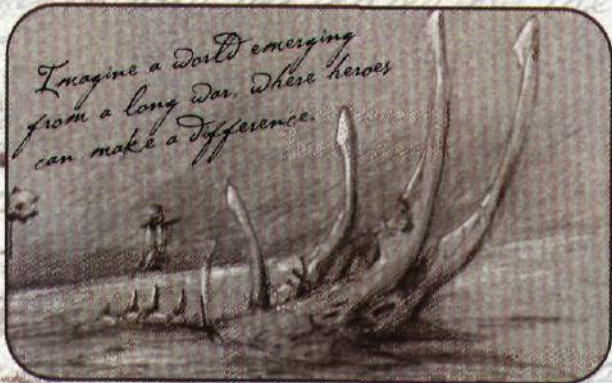 Imagine a world emerging
from a long war, where heroes
can make a difference.